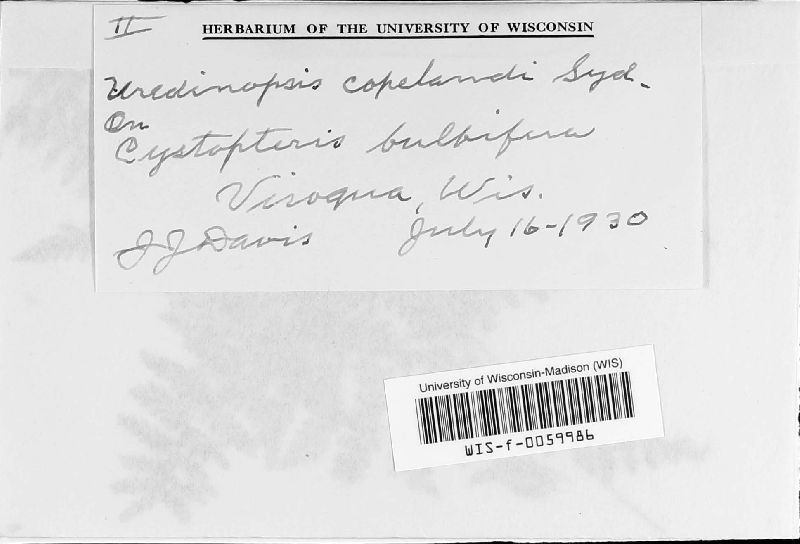 II
HERBARIUM OF THE UNIVERSITY OF WISCONSIN
Uredinopsis copelandi Syd.
On
Cystopteris bulbifera
Viroqua, Wis.
JJ Davis July 16-1930
University of Wisconsin-Madison (WIS)
WIS-f-0059986